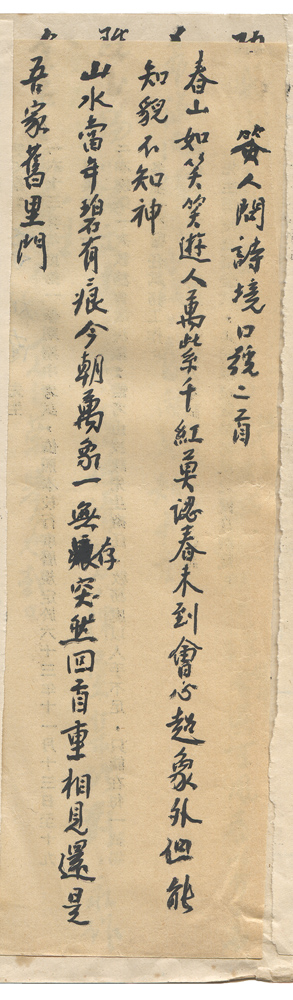 答人問詩境口號二首
春山如笑笑遊人萬紫千紅莫認春未到會心超象外但能
知貌不知神
山水當年碧有痕今朝萬象一無存突然回首重相見還是
吾家舊里門